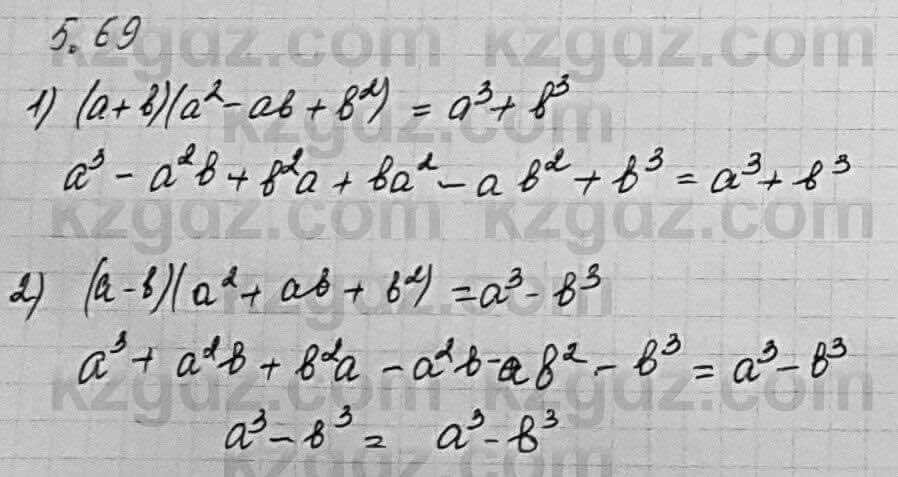 5.69
1) (a+b)(a²-ab+b²) = a³+b³
a³-a²b+b²a+ba²-ab²+b³=a³+b³
2) (a-b)(a²+ab+b²)=a³-b³
a³+a²b+b²a-a²b-ab²-b³=a³-b³
a³-b³= a³-b³
kzgdz.com kzgdz.com
kzgdz.com
kzgdz.com kzgdz.com
kzgdz.com
kzgdz.com kzgdz.com
kzgdz.com